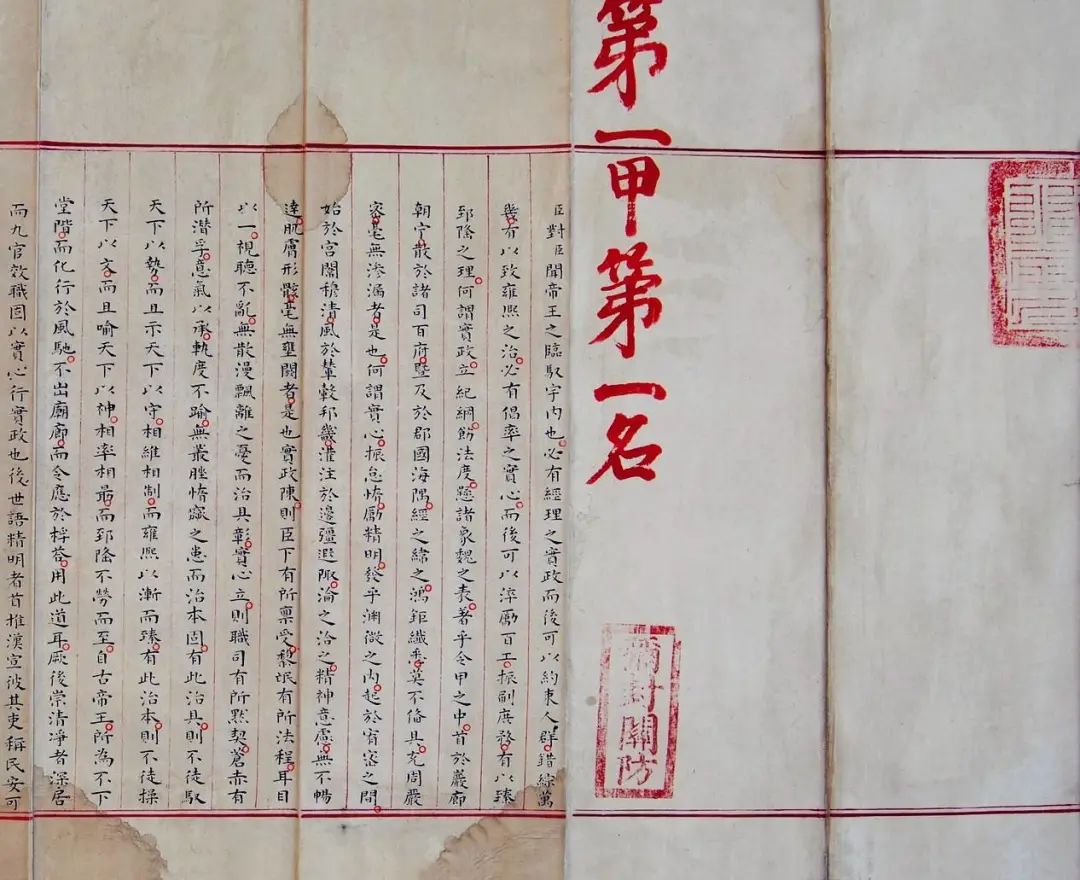 第一甲第一名
彌封關防
臣對臣聞帝王之臨馭宇内也必有經理之實政而後可以約束人群錯綜萬
幾有以致雍熙之治必有倡率之實心而後可以淬勵百工振刷庶務有以臻
郅隆之理何謂實政立紀綱飭法度懸諸象魏之表著乎令甲之中首於巖廊
朝宁散於諸司百府暨及於郡國海隅經之緯之鴻鉅纖悉莫不備具充周嚴
密毫無滲漏者是也何謂實心振怠惰勵精明發乎淵微之内起於宥密之間
始於宮闈穆清風於輦轂邦畿灌注於邊疆遐陬淪之洽之精神意慮無不暢
達肌膚形骸毫無壅閼者是也實政陳則臣下有所稟受黎氓有所法程耳目
以一視聽不亂無散漫飄離之憂而治具彰實心立則職司有所默契蒼赤有
所潛孚意氣以承軌度不踰無叢脞惰窳之患而治本固有此治具則不徒馭
天下以勢而且示天下以守相維相制而雍熙以漸而臻有此治本則不徒操
天下以文而且喻天下以神相率相最而郅隆不勞而至自古帝王所為不下
堂階而化行於風馳不出廟廊而令應於桴答用此道耳厥後崇清凈者深居
而九官效職固以實心行實政也後世語精明者首推漢宣彼其吏稱民安可